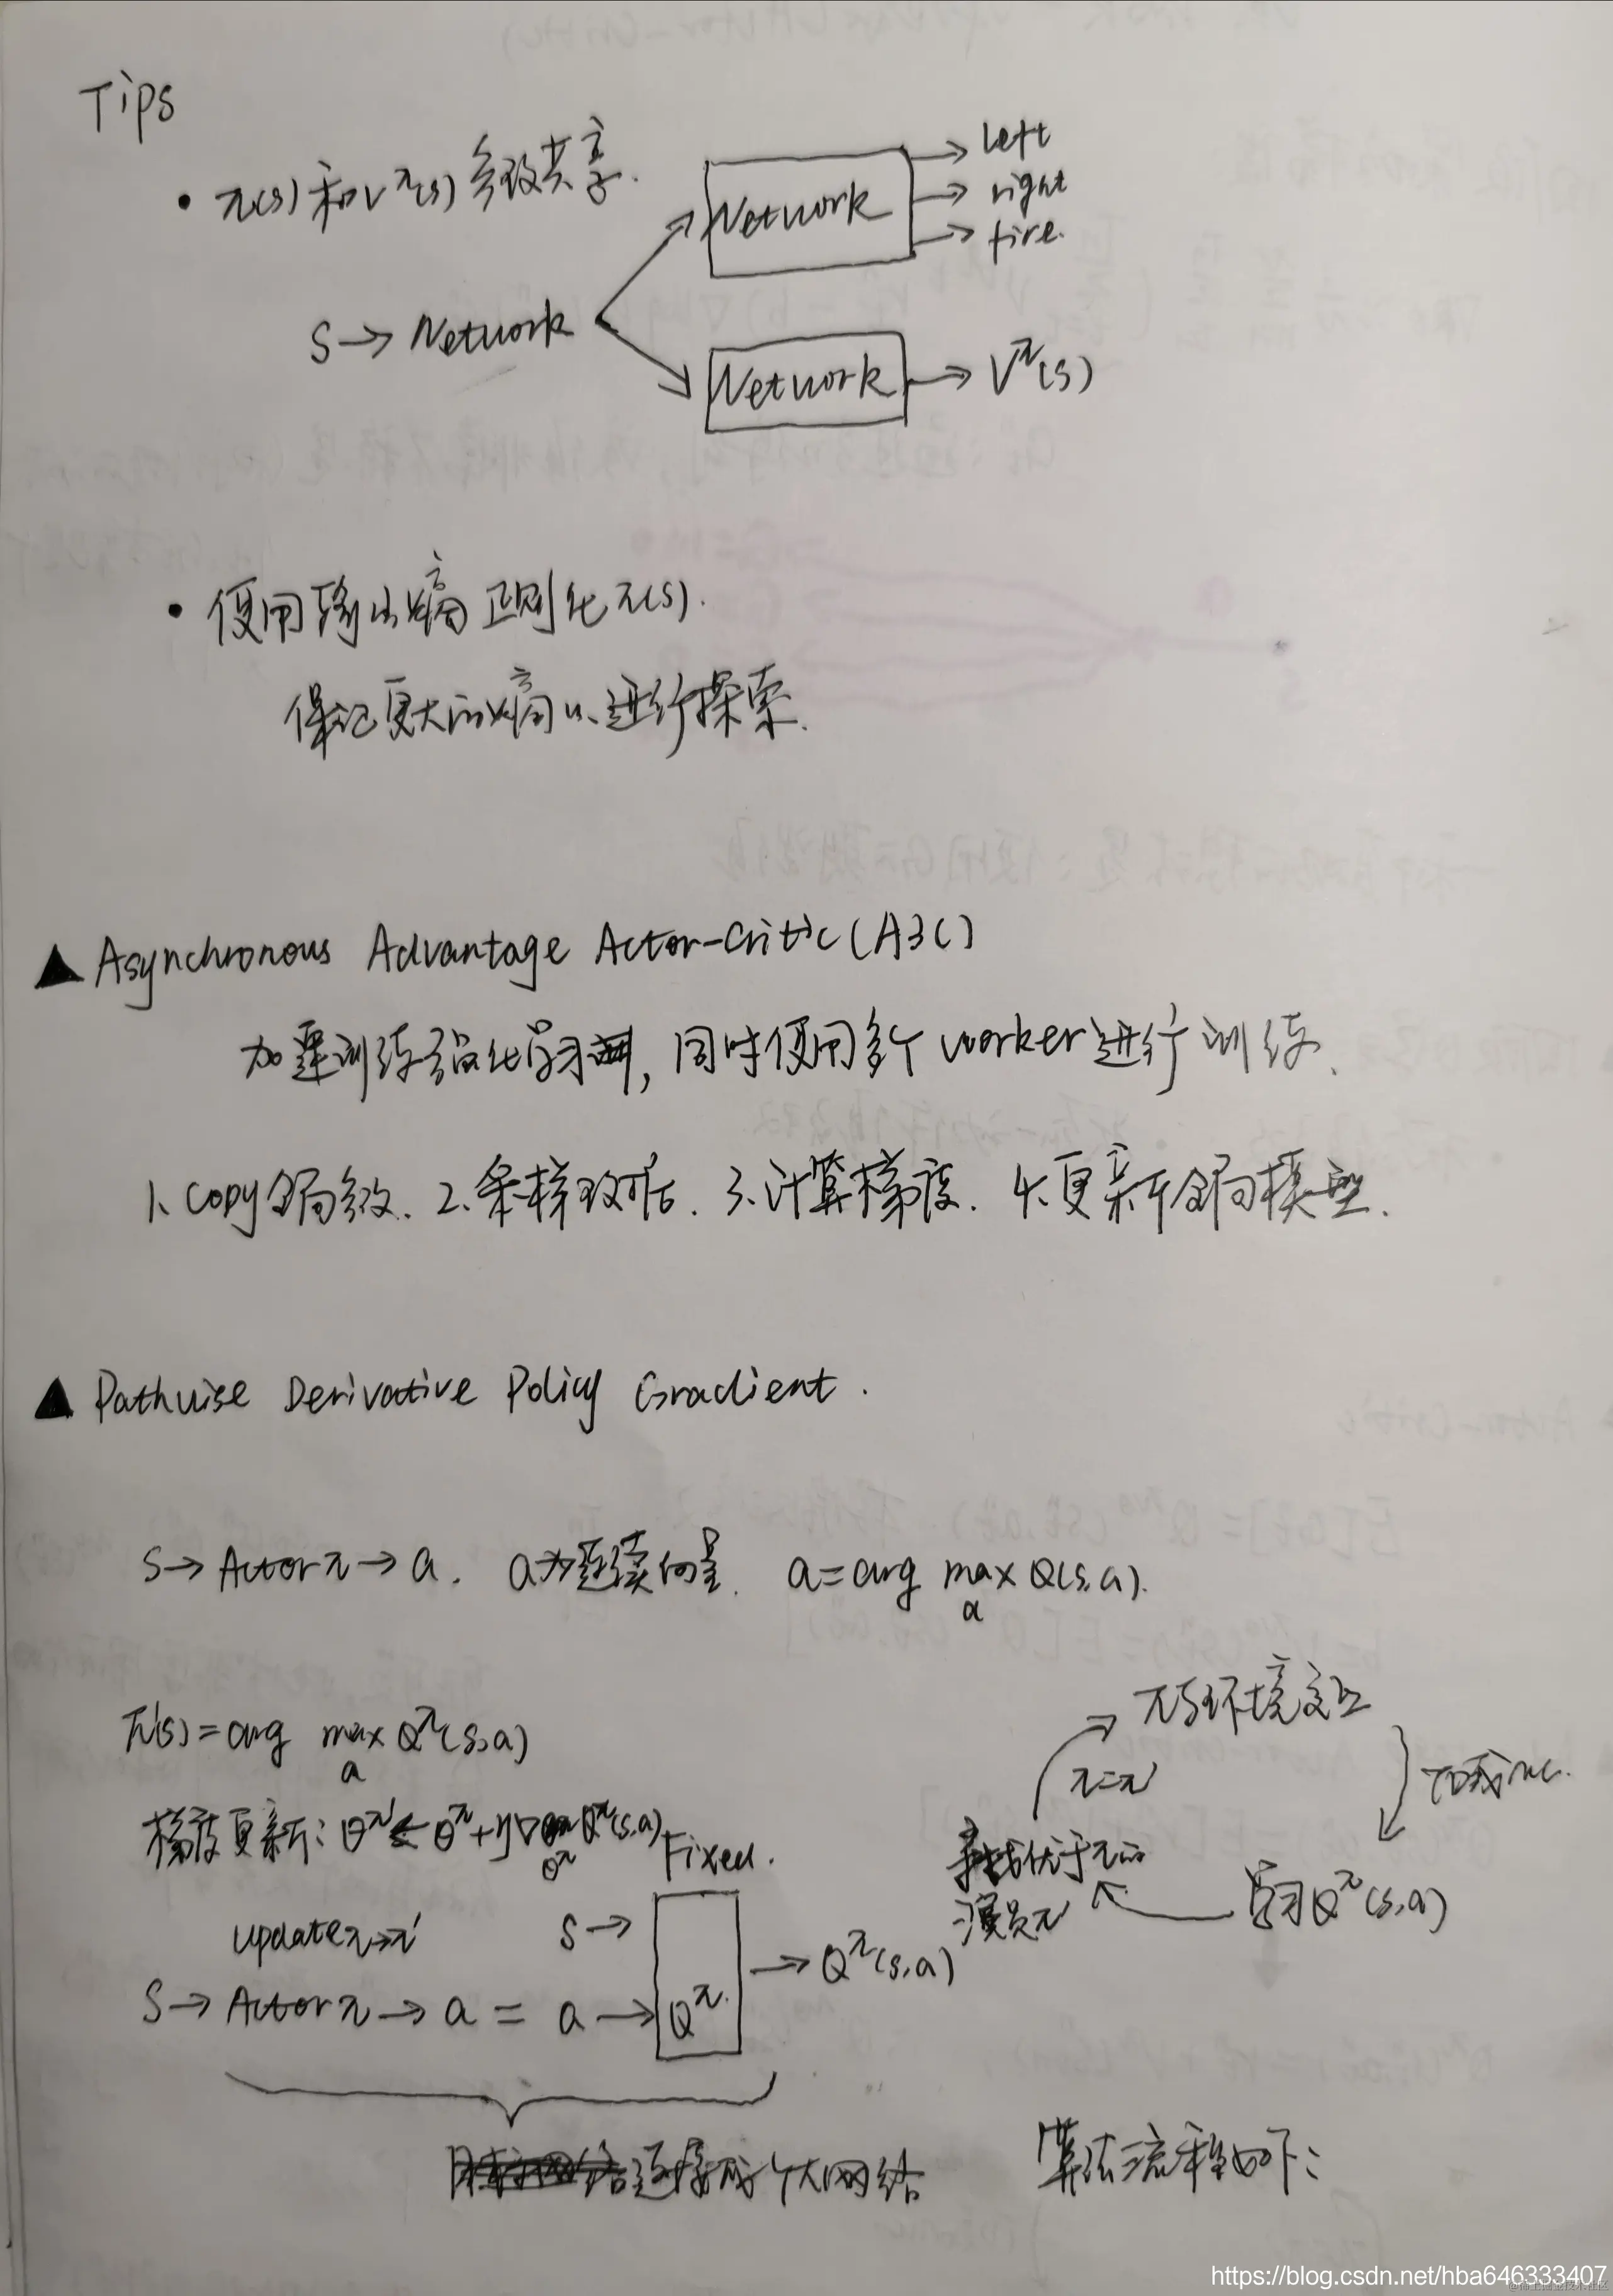 Tips
• π(s) 和 V^π(s) 参数共享.
S → Network
Network → left
→ right
→ fire.
Network → V^π(s)
• 使用输出熵正则化 π(s).
保证更大的熵以进行探索.
▲ Asynchronous Advantage Actor-Critic (A3C)
加速训练强化学习, 同时使用多个 worker 进行训练.
1. copy全局参数. 2. 采样数据. 3. 计算梯度. 4. 更新全局模型.
▲ Pathwise Derivative Policy Gradient.
S → Actor π → a. a为连续向量. a = arg max_a Q(s,a).
π'(s) = arg max_a Q^π(s,a)
梯度更新: θ^π' ← θ^π + η∇_θ^π Q^π(s,a)
Fixed.
update π→π'
S →
S → Actor π → a = a → Q^π. → Q^π(s,a)
连接成个大网络
π与环境交互
TD或MC.
学习Q^π(s,a)
寻找优于π的
演员π'
π=π'
算法流程如下:
https://blog.csdn.net/hba646333407
@稀土掘金技术社区